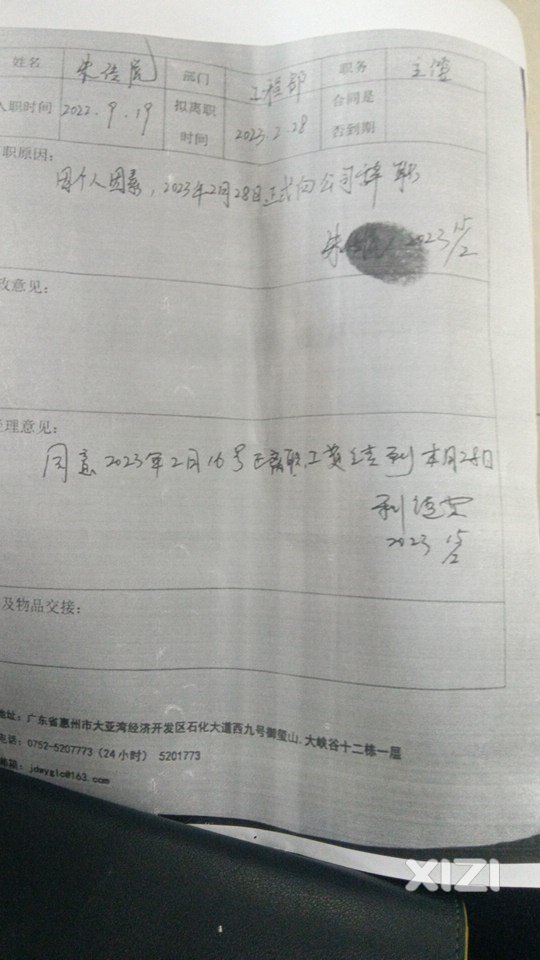 姓名 朱 部门 工程部 职务 主管
入职时间 2022.9.19 拟离职时间 2023.2.28 合同是否到期
职原因：
因个人因素，2023年2月28日正式向公司辞职
朱 2023 15/2
政意见：
经理意见：
同意2023年2月16号正离职，工资结到本月28日
2023 15/2
及物品交接：
地址：广东省惠州市大亚湾经济开发区石化大道西九号御玺山.大峡谷十二栋一层
电话：0752-5207773（24小时） 5201773
邮箱：jdwyglc@163.com
XIZI